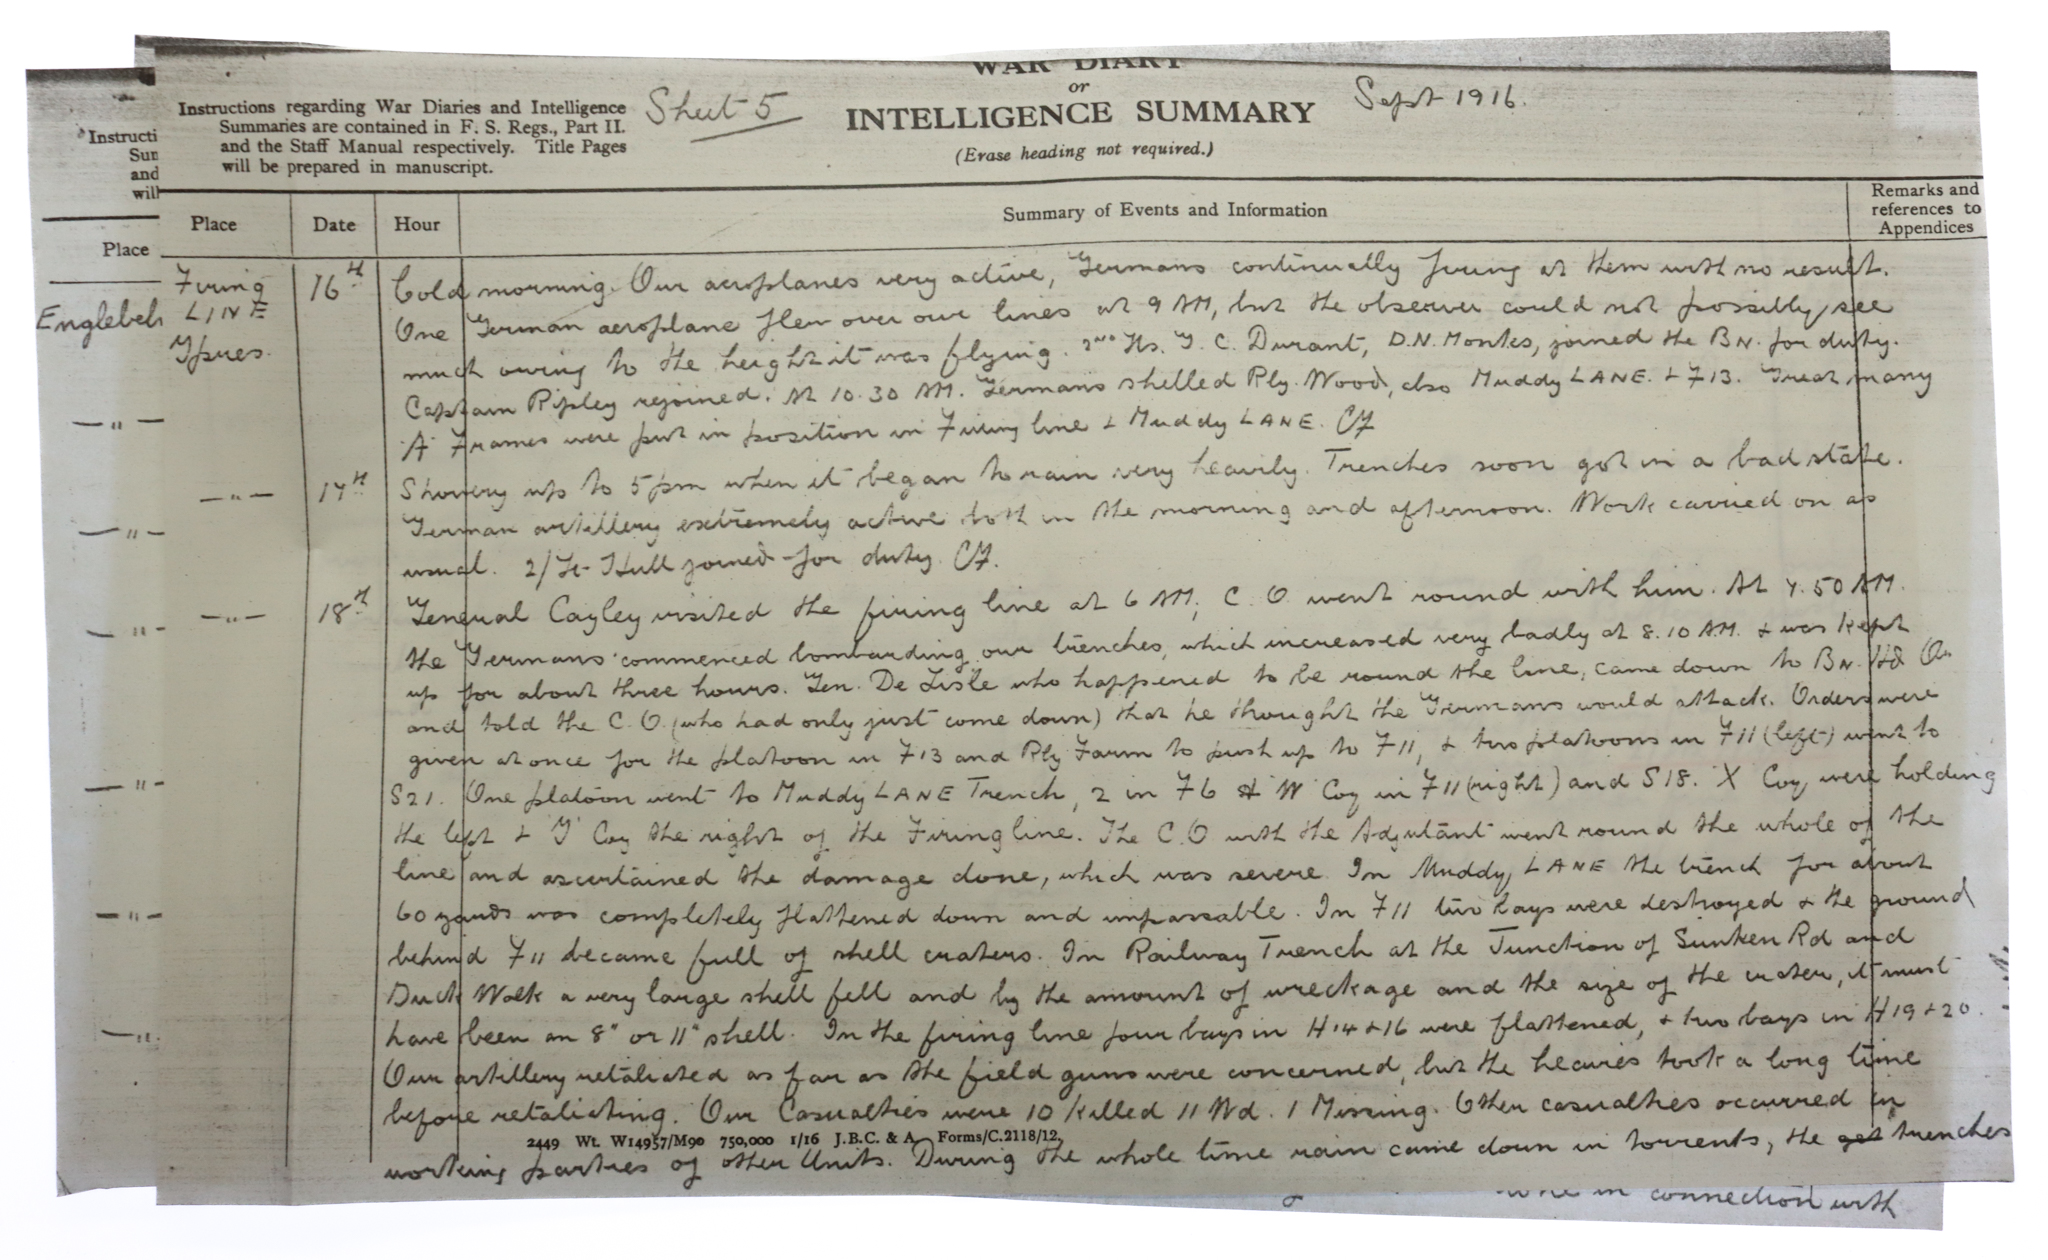 WAR DIARY
or
INTELLIGENCE SUMMARY
(Erase heading not required.)
Sept 1916.
Sheet 5
Instructions regarding War Diaries and Intelligence
Summaries are contained in F. S. Regs., Part II.
and the Staff Manual respectively. Title Pages
will be prepared in manuscript.
Instructi
Sum
and
will
Place
Englebel
Place Date Hour Summary of Events and Information Remarks and references to Appendices
Firing LINE Ypres. 16th Cold morning. Our aeroplanes very active, Germans continually firing at them with no result.
One German aeroplane flew over our lines at 9 AM, but the observer could not possibly see
much owing to the height it was flying. 2nd Lts. G. C. Durant, D.N. Monks, joined the BN. for duty.
Captain Ripley rejoined. At 10.30 AM. Germans shelled Rly. Wood, also Muddy LANE. & F13. Great many
'A' Frames were put in position in Firing line & Muddy LANE. CF
— " — 17th Showery up to 5 pm when it began to rain very heavily. Trenches soon got in a bad state.
German artillery extremely active both in the morning and afternoon. Work carried on as
usual. 2/Lt Hull joined for duty. CF.
— " — 18th General Cayley visited the firing line at 6 AM; C.O. went round with him. At 7.50 AM.
the Germans commenced bombarding our trenches, which increased very badly at 8.10 AM. & was kept
up for about three hours. Gen. De Lisle who happened to be round the line, came down to BN. Hd Qrs
and told the C.O. (who had only just come down) that he thought the Germans would attack. Orders were
given at once for the platoon in F13 and Rly Farm to push up to F11, & two platoons in F11 (left) went to
S21. One platoon went to Muddy LANE Trench, 2 in F6 & 'W' Coy in F11 (right) and S18. 'X' Coy were holding
the left & 'Y' Coy the right of the Firing line. The C.O with the Adjutant went round the whole of the
line and ascertained the damage done, which was severe. In Muddy LANE the trench for about
60 yards was completely flattened down and impassable. In F11 two bays were destroyed & the ground
behind F11 became full of shell craters. In Railway Trench at the Junction of Sunken Rd and
Duck Walk a very large shell fell and by the amount of wreckage and the size of the crater, it must
have been an 8" or 11" shell. In the firing line four bays in H14 & 16 were flattened, & two bays in H19 & 20.
Our artillery retaliated as far as the field guns were concerned, but the heavies took a long time
before retaliating. Our Casualties were 10 Killed 11 Wd. 1 Missing. Other casualties occurred in
2449 Wt. W14957/M90 750,000 1/16 J.B.C. & A. Forms/C.2118/12.
working parties of other Units. During the whole time rain came down in torrents, the get trenches
in connection with